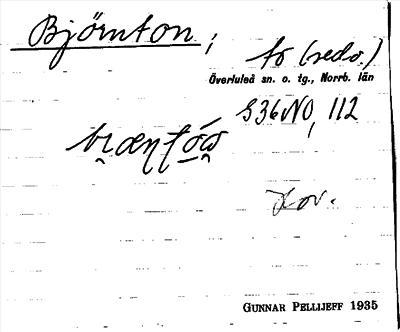 Björnton, to (redo.)
Överluleå sn. o. tg., Norrb. län
S36NO, 112
GUNNAR PELLIJEFF 1935